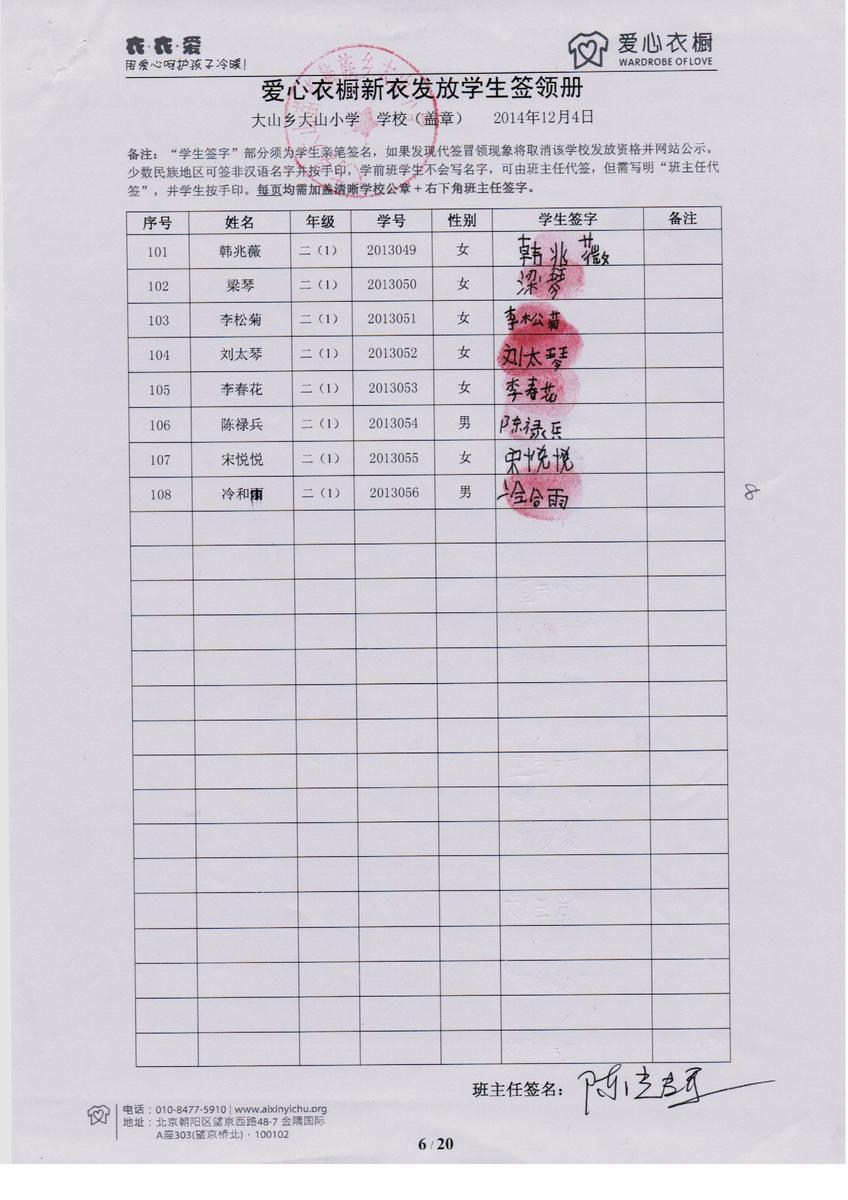 衣·衣·爱
用爱心呵护孩子冷暖！
爱心衣橱
WARDROBE OF LOVE
爱心衣橱新衣发放学生签领册
大山乡大山小学 学校（盖章） 2014年12月4日
备注：“学生签字”部分须为学生亲笔签名，如果发现代签冒领现象将取消该学校发放资格并网站公示。
少数民族地区可签非汉语名字并按手印，学前班学生不会写名字，可由班主任代签，但需写明“班主任代
签”，并学生按手印。每页均需加盖清晰学校公章+右下角班主任签字。
序号 姓名 年级 学号 性别 学生签字 备注
101 韩兆薇 二（1） 2013049 女 韩兆薇
102 梁琴 二（1） 2013050 女 梁琴
103 李松菊 二（1） 2013051 女 李松菊
104 刘太琴 二（1） 2013052 女 刘太琴
105 李春花 二（1） 2013053 女 李春花
106 陈禄兵 二（1） 2013054 男 陈禄兵
107 宋悦悦 二（1） 2013055 女 宋悦悦
108 冷和雨 二（1） 2013056 男 冷合雨
8
班主任签名：
电话：010-8477-5910 | www.aixinyichu.org
地址：北京朝阳区望京西路48-7 金隅国际
A座303(望京桥北)·100102
6 / 20